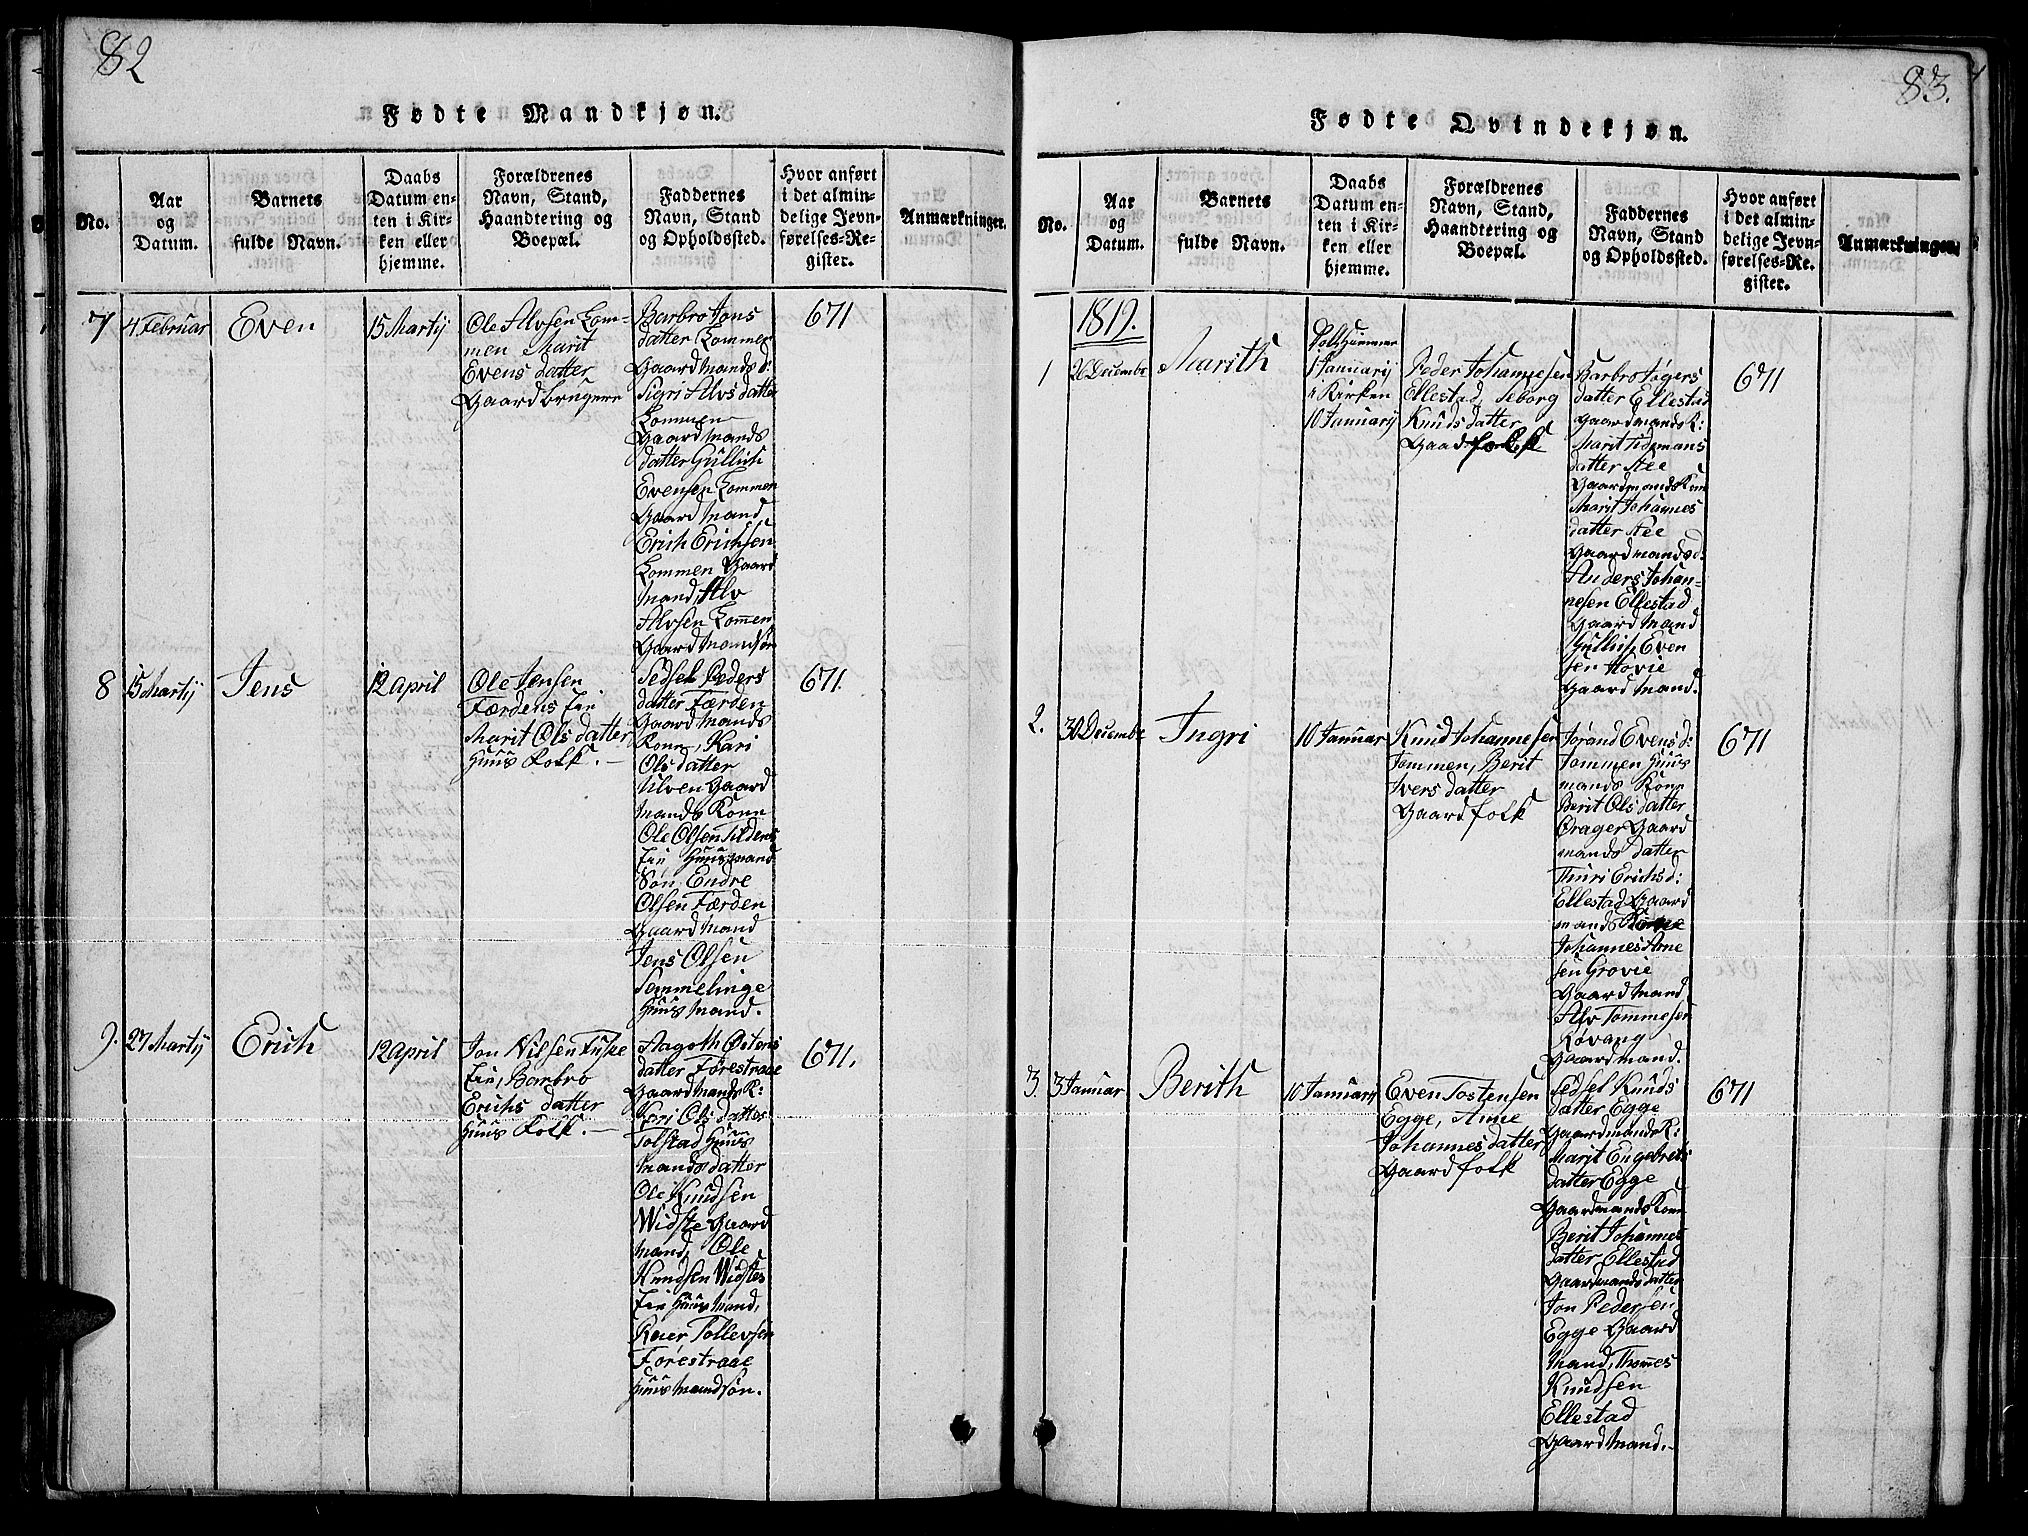 82
Fødte Mandkjøn.
No.
Aar
og
Datum.
Barnets
fulde Navn.
Daabs
Datum en-
ten i Kir-
ken eller
hjemme.
Forældrenes
Navn, Stand,
Haandtering og
Boepæl.
Faddernes
Navn, Stand
og Opholdssted.
Hvor anført
i det almin-
delige Jevn-
førelses-Re-
gister.
Anmærkninger.
7
4 Februar
Even
15 Martij
Ole Alvsen Lom-
men Marit
Evens datter
Gaardbrugere
Barbro Jons
datter Lommen
Gaardmands d:
Sigri Alvs datter
Lommen
Gaardmands
datter Gullich
Evensen Lommen
Gaard Mand
Erich Erichsen
Lommen Gaard
Mand, Alv
Alvsen Lommen
Gaard Mandsøn
671
8
15 Martij
Jens
12 April
Ole Jensen
Færdens Eie
Marit Ols datter
Huus Folk.
Sedsel Peders
datter Færden
Gaard Mands
Konn, Kari
Ols datter
Ulven Gaard
Mands Konn
Ole Olsen Tildens
Eie Huusmand
Søn, Endre
Olsen Færden
Gaard Mand
Jens Olsen
Semmelinge
Huus Mand.
671.
9.
27 Martij
Erich
12 April
Jon Nilsen Fuske
Eie, Barbro
Erichs datter
Huus Folk.
Aagoth Østens
datter Førestraae
Gaard Mands K:
Kari Ols datter
Tolstad Huus
Mands datter
Ole Knudsen
Widste Gaard
Mand, Ole
Knudsen Widstes
Eie Huus Mand,
Reier Tollevsen
Førestraae
Huus Mandsøn.
671.
83.
Fødte Qvindekjøn.
No.
Aar
og
Datum.
Barnets
fulde Navn.
Daabs
Datum en-
ten i Kir-
ken eller
hjemme.
Forældrenes
Navn, Stand,
Haandtering og
Boepæl.
Faddernes
Navn, Stand
og Opholdssted.
Hvor anført
i det almin-
delige Jevn-
førelses-Re-
gister.
Anmærkninger
1819.
1
26 Decembr
Marith
Døbt Hiemme
1 Januarij
i Kirken
10 Januarij
Peder Johannesen
Ellestad, Seborg
Knuds datter
Gaadfolk
Barbro Tøgers
datter Ellestad
Gaardmands K:
Marit Tidemans
datter Aee
Gaardmands Kone
Marit Johannes
datter Aee
Gaardmands d:
Anders Johan-
nesen Ellestad
Gaard Mand
Gullich Even
sen Hovie
Gaard Mand.
671
2.
30 Decembr
Ingri
10 Januar
Knud Johannesen
Tommen, Berit
Ivers datter
Gaardfolk
Jørand Evens d:
Tommen Huus
mands Konn
Berit Ols datter
Drager Gaard
mands datter
Thuri Erichs d:
Ellestad Gaard
mands Kone
Johannes Arne
sen Grovie
Gaard Mand
Alv Tommesen
Røvang
Gaardmand.
671
3.
3 Januar
Berith
10 Januarij
Even Tostensen
Egge, Anne
Johannesdatter
Gaardfolk
Sedsel Knuds
datter Egge
Gaardmands K:
Marit Engebrets
datter Egge
Gaardmands Konn
Berit Johannes
datter Ellestad
Gaardmands datter
Jon Pedersen
Egge Gaard
Mand, Thomes
Knudsen
Ellestad
Gaard Mand.
671